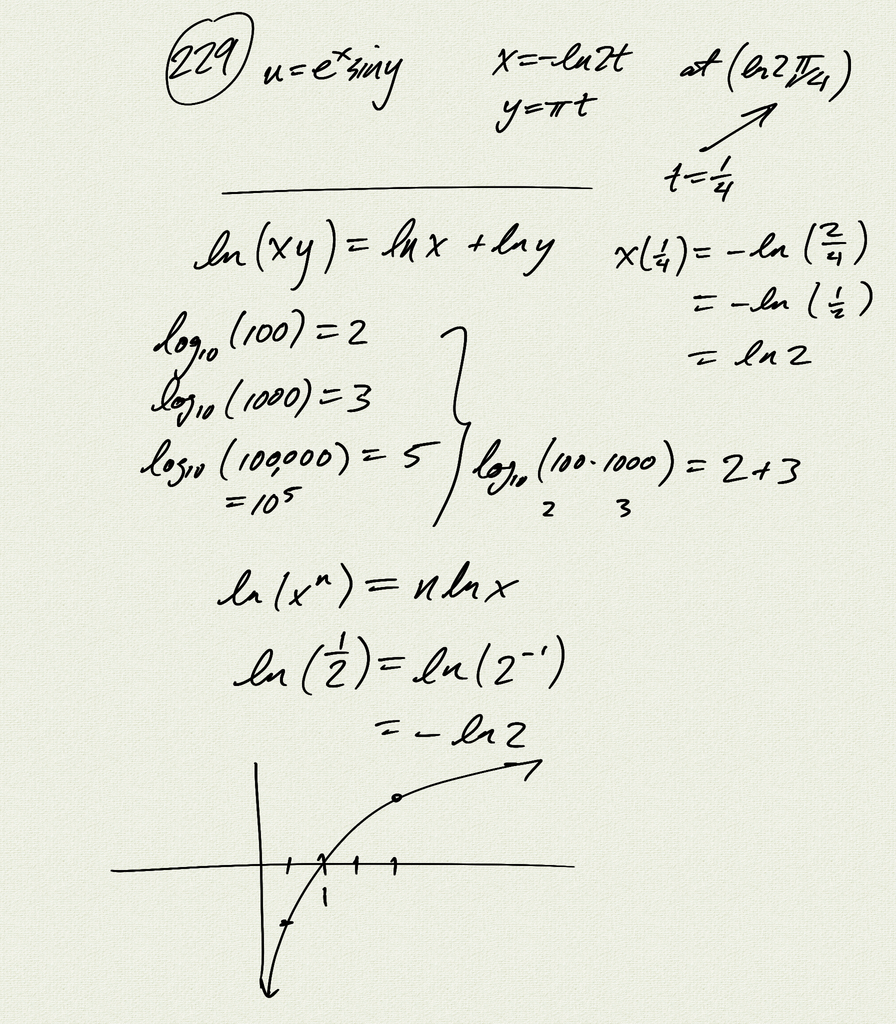 229 u=eˣsiny x=-ln2t at (ln2 π/4)
y=πt
t=1/4
ln(xy)=lnx+lny
x(1/4)=-ln(2/4)
=-ln(1/2)
=ln2
log₁₀(100)=2
log₁₀(1000)=3
log₁₀(100,000)=5
=10⁵
log₁₀(100·1000)=2+3
2 3
ln(xⁿ)=nlnx
ln(1/2)=ln(2⁻¹)
=-ln2
1